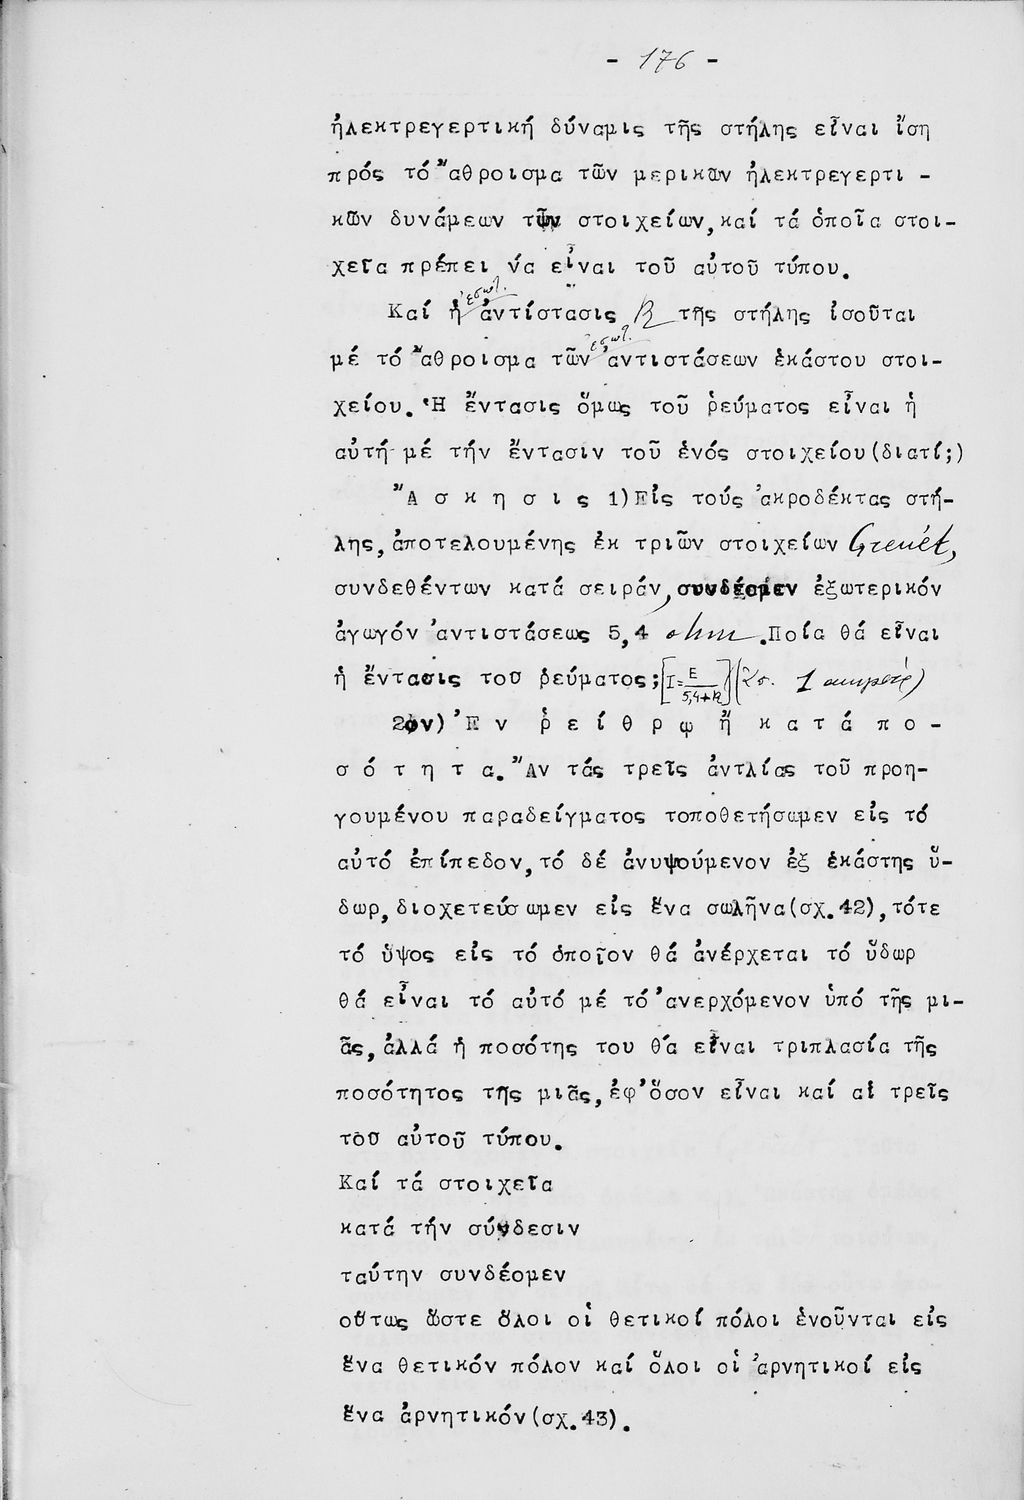 - 176 -
ἠλεκτρεγερτική δύναμις τῆς στήλης εἶναι ἴση
πρός τό ἄθροισμα τῶν μερικῶν ἠλεκτρεγερτι -
κῶν δυνάμεων τῶν στοιχείων, καί τά ὁποῖα στοι-
χεῖα πρέπει νά εἶναι τοῦ αὐτοῦ τύπου.
Καί ἡ ἐσωτ. ἀντίστασις R τῆς στήλης ἰσοῦται
μέ τό ἄθροισμα τῶν ἐσωτ. ἀντιστάσεων ἑκάστου στοι-
χείου. Ἡ ἔντασις ὅμως τοῦ ῥεύματος εἶναι ἡ
αὐτή μέ τήν ἔντασιν τοῦ ἑνός στοιχείου(διατί;)
Ἄ σ κ η σ ι ς 1)Εἰς τούς ἀκροδέκτας στή-
λης, ἀποτελουμένης ἐκ τριῶν στοιχείων Grenet,
συνδεθέντων κατά σειράν, συνδέομεν ἐξωτερικόν
ἀγωγόν ἀντιστάσεως 5,4 ohm. Ποία θά εἶναι
ἡ ἔντασις τοῦ ῥεύματος; [I=E/5,4+R]
2ον) Ἐ ν ῥ ε ί θ ρ ῳ ἤ κ α τ ά π ο -
σ ό τ η τ α. Ἄν τάς τρεῖς ἀντλίας τοῦ προη-
γουμένου παραδείγματος τοποθετήσωμεν εἰς τό
αὐτό ἐπίπεδον, τό δέ ἀνυψούμενον ἐξ ἑκάστης ὕ-
δωρ, διοχετεύσωμεν εἰς ἕνα σωλῆνα(σχ. 42), τότε
τό ὕψος εἰς τό ὁποῖον θά ἀνέρχεται τό ὕδωρ
θά εἶναι τό αὐτό μέ τό ἀνερχόμενον ὑπό τῆς μι-
ᾶς, ἀλλά ἡ ποσότης του θά εἶναι τριπλασία τῆς
ποσότητος τῆς μιᾶς, ἐφ' ὅσον εἶναι καί αἱ τρεῖς
τοῦ αὐτοῦ τύπου.
Καί τά στοιχεῖα
κατά τήν σύνδεσιν
ταύτην συνδέομεν
οὕτως ὥστε ὅλοι οἱ θετικοί πόλοι ἑνοῦνται εἰς
ἕνα θετικόν πόλον καί ὅλοι οἱ ἀρνητικοί εἰς
ἕνα ἀρνητικόν(σχ. 43).